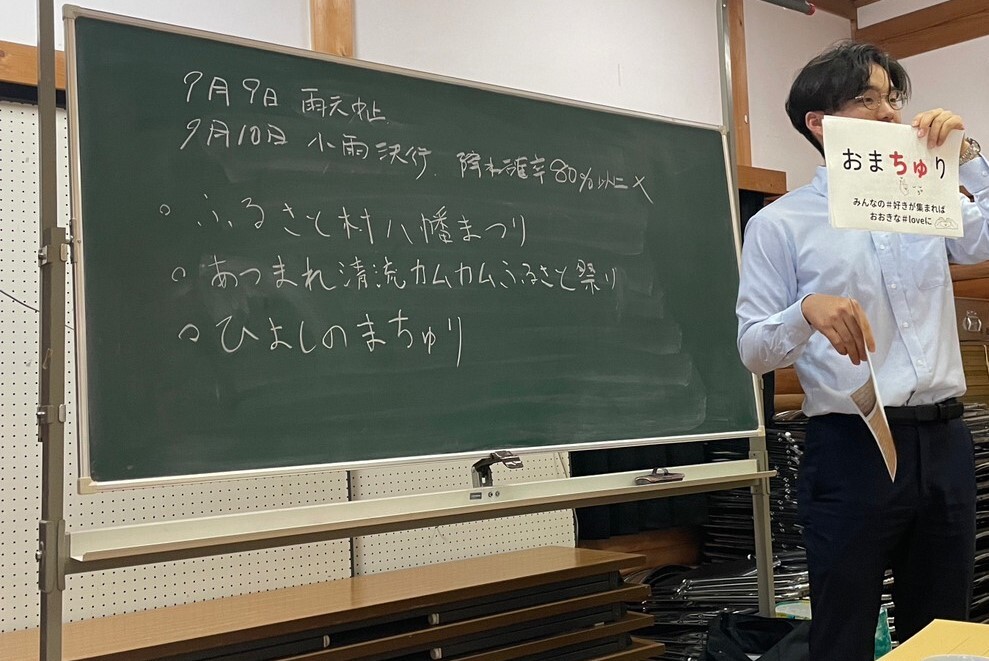 9月9日 雨天中止
9月10日 小雨決行. 降水確率80%以上×
○ ふるさと村八幡まつり
○ あつまれ清流カムカムふるさと祭り
○ ひよしのまちゅり
おまちゅり
みんなの#好きが集まれば
おおきな#loveに